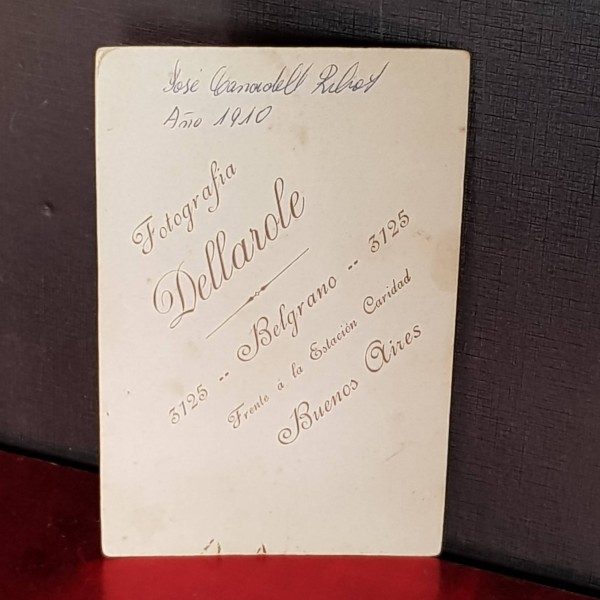 José Canadell
Año 1910
Fotografia
Dellarole
3125 -- Belgrano -- 3125
Frente á la Estación Caridad
Buenos Aires